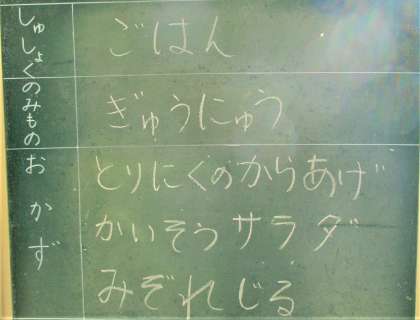 しゅしょく
ごはん
のみもの
ぎゅうにゅう
おかず
とりにくのからあげ
かいそうサラダ
みぞれじる